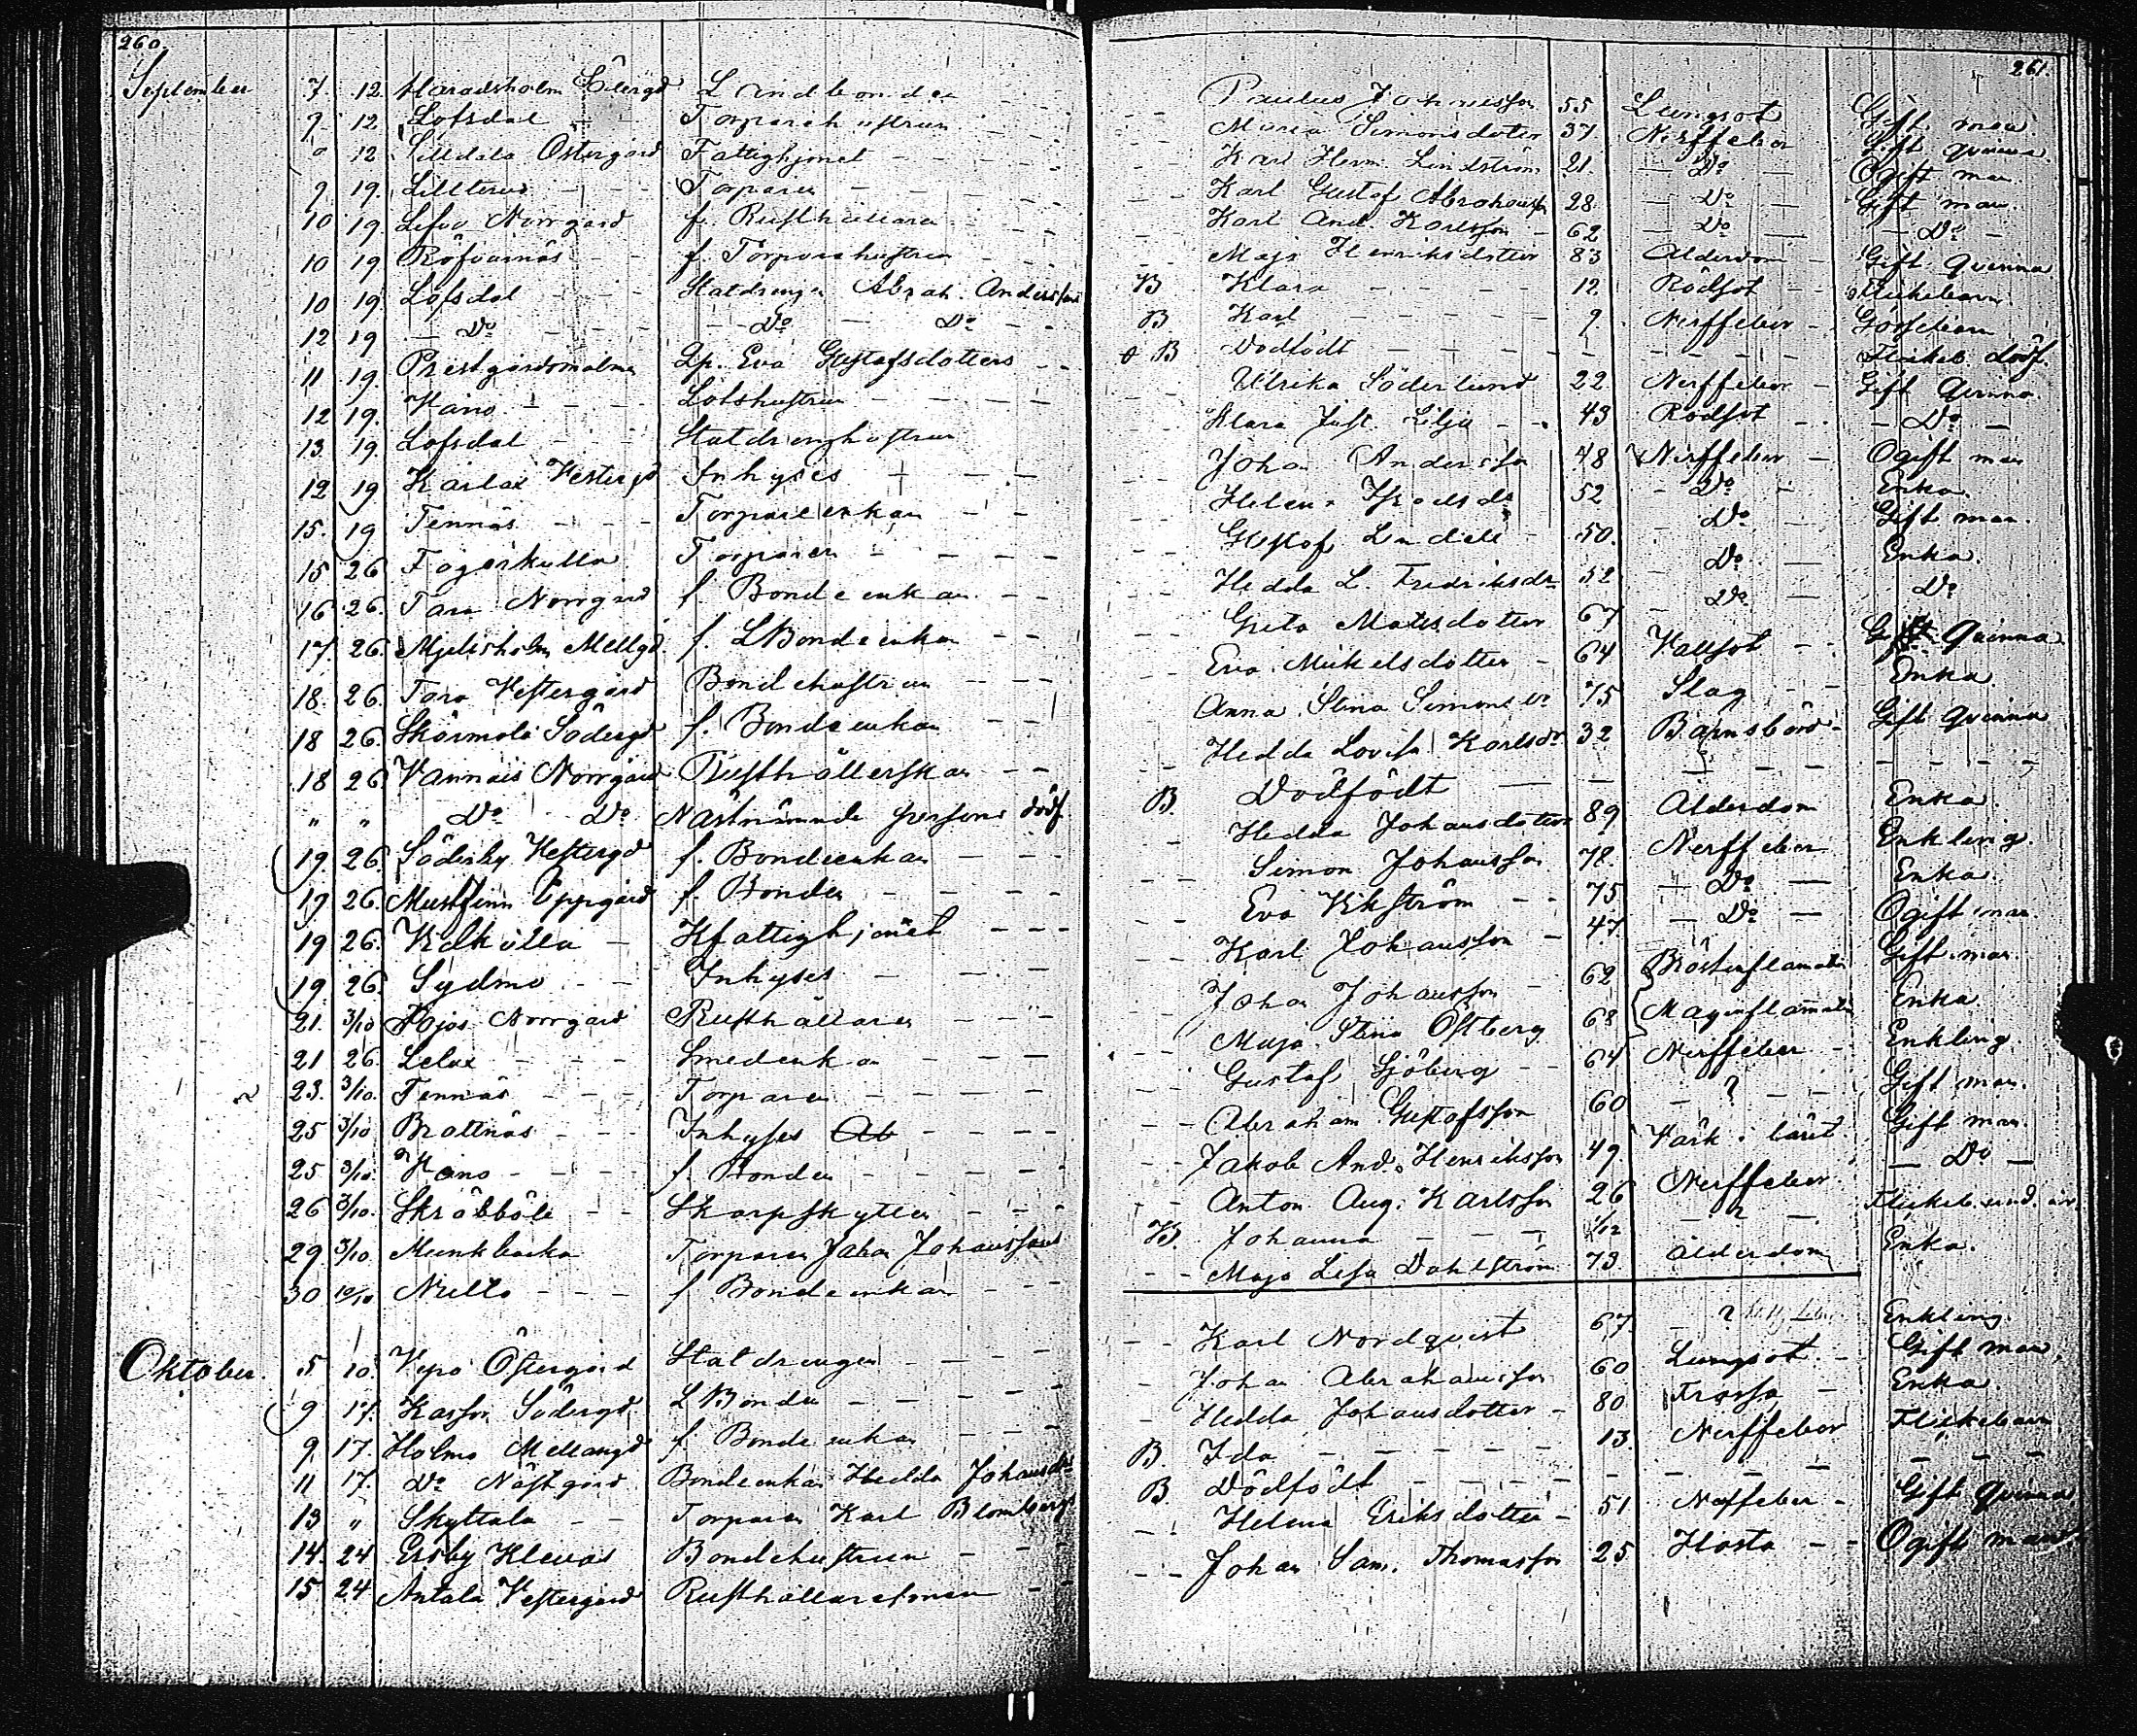 260.
September 7. 12. Haradsholm Östergd Landbonden
9. 12 Lofsdal Torparehustrun
" 12 Lilldala Östergård Fattighjonet
9. 19. Lillterus Torparen
10 19. Lefvo Norrgård f. Rusthållaren
10 19 Röfvarnäs f. Torparehustrun
10 19 Lofsdal Statdrengen Abrah. Anderssons
12 19 Do Do Do
11 19. Prestgårdsmalmen Qp. Eva Gustafsdotters
12 19. Våno Lotshustrun
13. 19. Lofsdal Statdrengshustrun
12 19 Karlax Vestergd Inhyses
15. 19 Tennäs Torpareenkan
15 26 Fagerkulla Torparen
16 26. Tara Norrgård f. Bondeenkan
17. 26. Mjelisholm Mellgd. f. LBondeenkan
18. 26. Tara Vestergård Bondehustrun
18 26. Skärmola Södergd f. Bondeenkan
18 26. Vannais Norrgård Rusthållerskan
" " Do Do Nästnämnde persons dödf.
19. 26. Söderby Vestergd f. Bondeenkan
19 26. Mustfinn Uppgård f. Bonden
19 26. Vidkulla Kfattighjonet
19. 26. Sydmo Inhyses
21. 3/10 Pojos Norrgård Rusthållaren
21 26. Lelax Smedenkan
23. 3/10. Tennäs Torparen
25 3/10 Brattnäs Inhyses Ab
25 3/10. Våno f. Bonden
26 3/10. Skräbböle Skarpskytten
29. 3/10 Munkbacka Torparen Johan Johanssons
30 10/10 Nulto f Bondeenkan
Oktober. 5 10. Vepo Östergård Statdrengen
9 17. Kassor Södergd LBonden
9. 17. Holmo Mellangd f. Bondeenkan
11 17. Do Nästgård Bondeenkan Hedda Johansdrs
13 " Skyttala Torparen Karl Blombergs
14. 24 Ersby Klevas Bondehustrun
15 24 Antala Vestergård Rusthållaresonen
261.
Paulus Johansson 55 Lungsot Gift man.
Maria Simonsdotter 37. Nerffeber Gift qvinna.
Karl Herm. Lindström 21. Do Ogift man.
Karl Gustaf Abrahamsson 28. Do Gift man.
Karl And. Karlsson 62 Do Do
Maja Henriksdotter 83 Ålderdom Gift qvinna
B Klara 12 Rödsot Flickebarn.
B Karl 9. Nerffeber Gossebarn
B Dödfödt Flickeb. dödf.
Ulrika Söderlund 22 Nerffeber Gift qvinna.
Klara Just. Lilja 43 Rödsot Do
Johan Andersson 48 Nerffeber Ogift man
Helena Israelsdr 52 Do Enka.
Gustaf Lindell 50. Do Gift man.
Hedda L. Fredriksdr 52 Do Enka.
Greta Matsdotter 67 Do Do
Eva Mickelsdotter 64 Kallsot Gift qvinna
Anna Stina Simonsdr 75 Slag Enka.
Hedda Lovisa Karlsdr 32 Barnsbörd Gift qvinna
B. Dödfödt
Hedda Johansdotter 89 Ålderdom Enka.
Simon Johansson 78. Nerffeber Enkling.
Eva Ekström 75 Do Enka.
Karl Johansson 47. Do Ogift man.
Johan Johansson 62 Bröstinflamation Gift man.
Maja Stina Östberg 68 Maginflamation Enka
Gustaf Sjöberg 64 Nerffeber Enkling.
Abraham Gustafsson 60 ? Gift man.
Jakob And. Henriksson 49. Värk i låret Gift man.
Anton Aug. Karlsson 26 Nerffeber Do
B. Johanna 1/12 ? Flickeb. und. år.
Maja Lisa Dahlström 73 Ålderdom Enka.
Karl Nordqvist 67. ? Enkling.
Johan Abrahamsson 60. Lungsot. Gift man.
Hedda Johansdotter 80 Frossa Enka.
B. Ida 13. Nerffeber Flickebarn
B. Dödfödt "
Helena Eriksdotter 51 Nerffeber Gift qvinna
Johan Sam. Thomasson 25 Hosta Ogift man